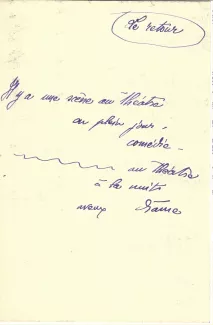 Le retour
Il y a une scène au théâtre
au plein jour,
comédie
au théâtre
à la nuit
drame